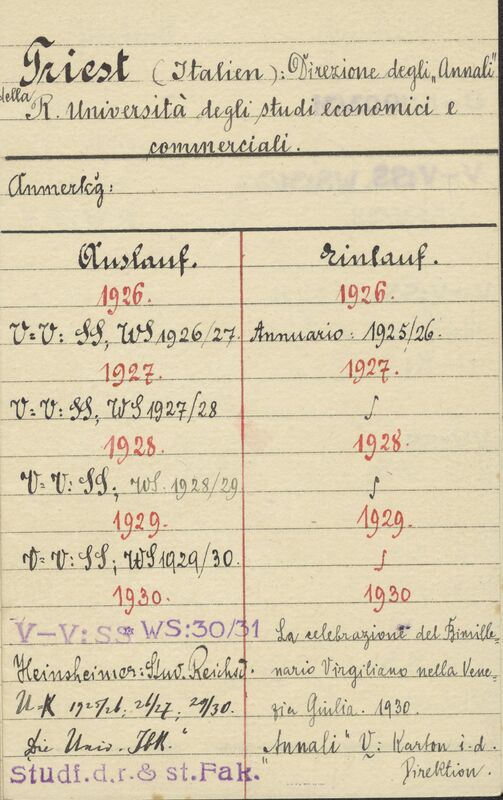 Triest (Italien): Direzione degli „Annali"
della R. Università degli studi economici e
commerciali.
Anmerkg:
Auslauf. Einlauf.
1926. 1926.
V=V: SS, WS 1926/27. Annuario: 1925/26.
1927. 1927.
V=V: SS, WS 1927/28 ∫
1928. 1928.
V=V: SS; WS. 1928/29 ∫
1929. 1929.
V=V: SS; WS 1929/30. ∫
1930. 1930
V–V: SS* WS: 30/31 La celebrazione del Bimille-
Heinsheimer: Stud. Reichsd. nario Virgiliano nella Vene-
U=K 1925/26; 26/27; 29/30. zia Giulia. 1930.
„Die Univ. Ibk." „Annali" V: Karton i. d.
Studf.d.r.& st.Fak." Direktion.